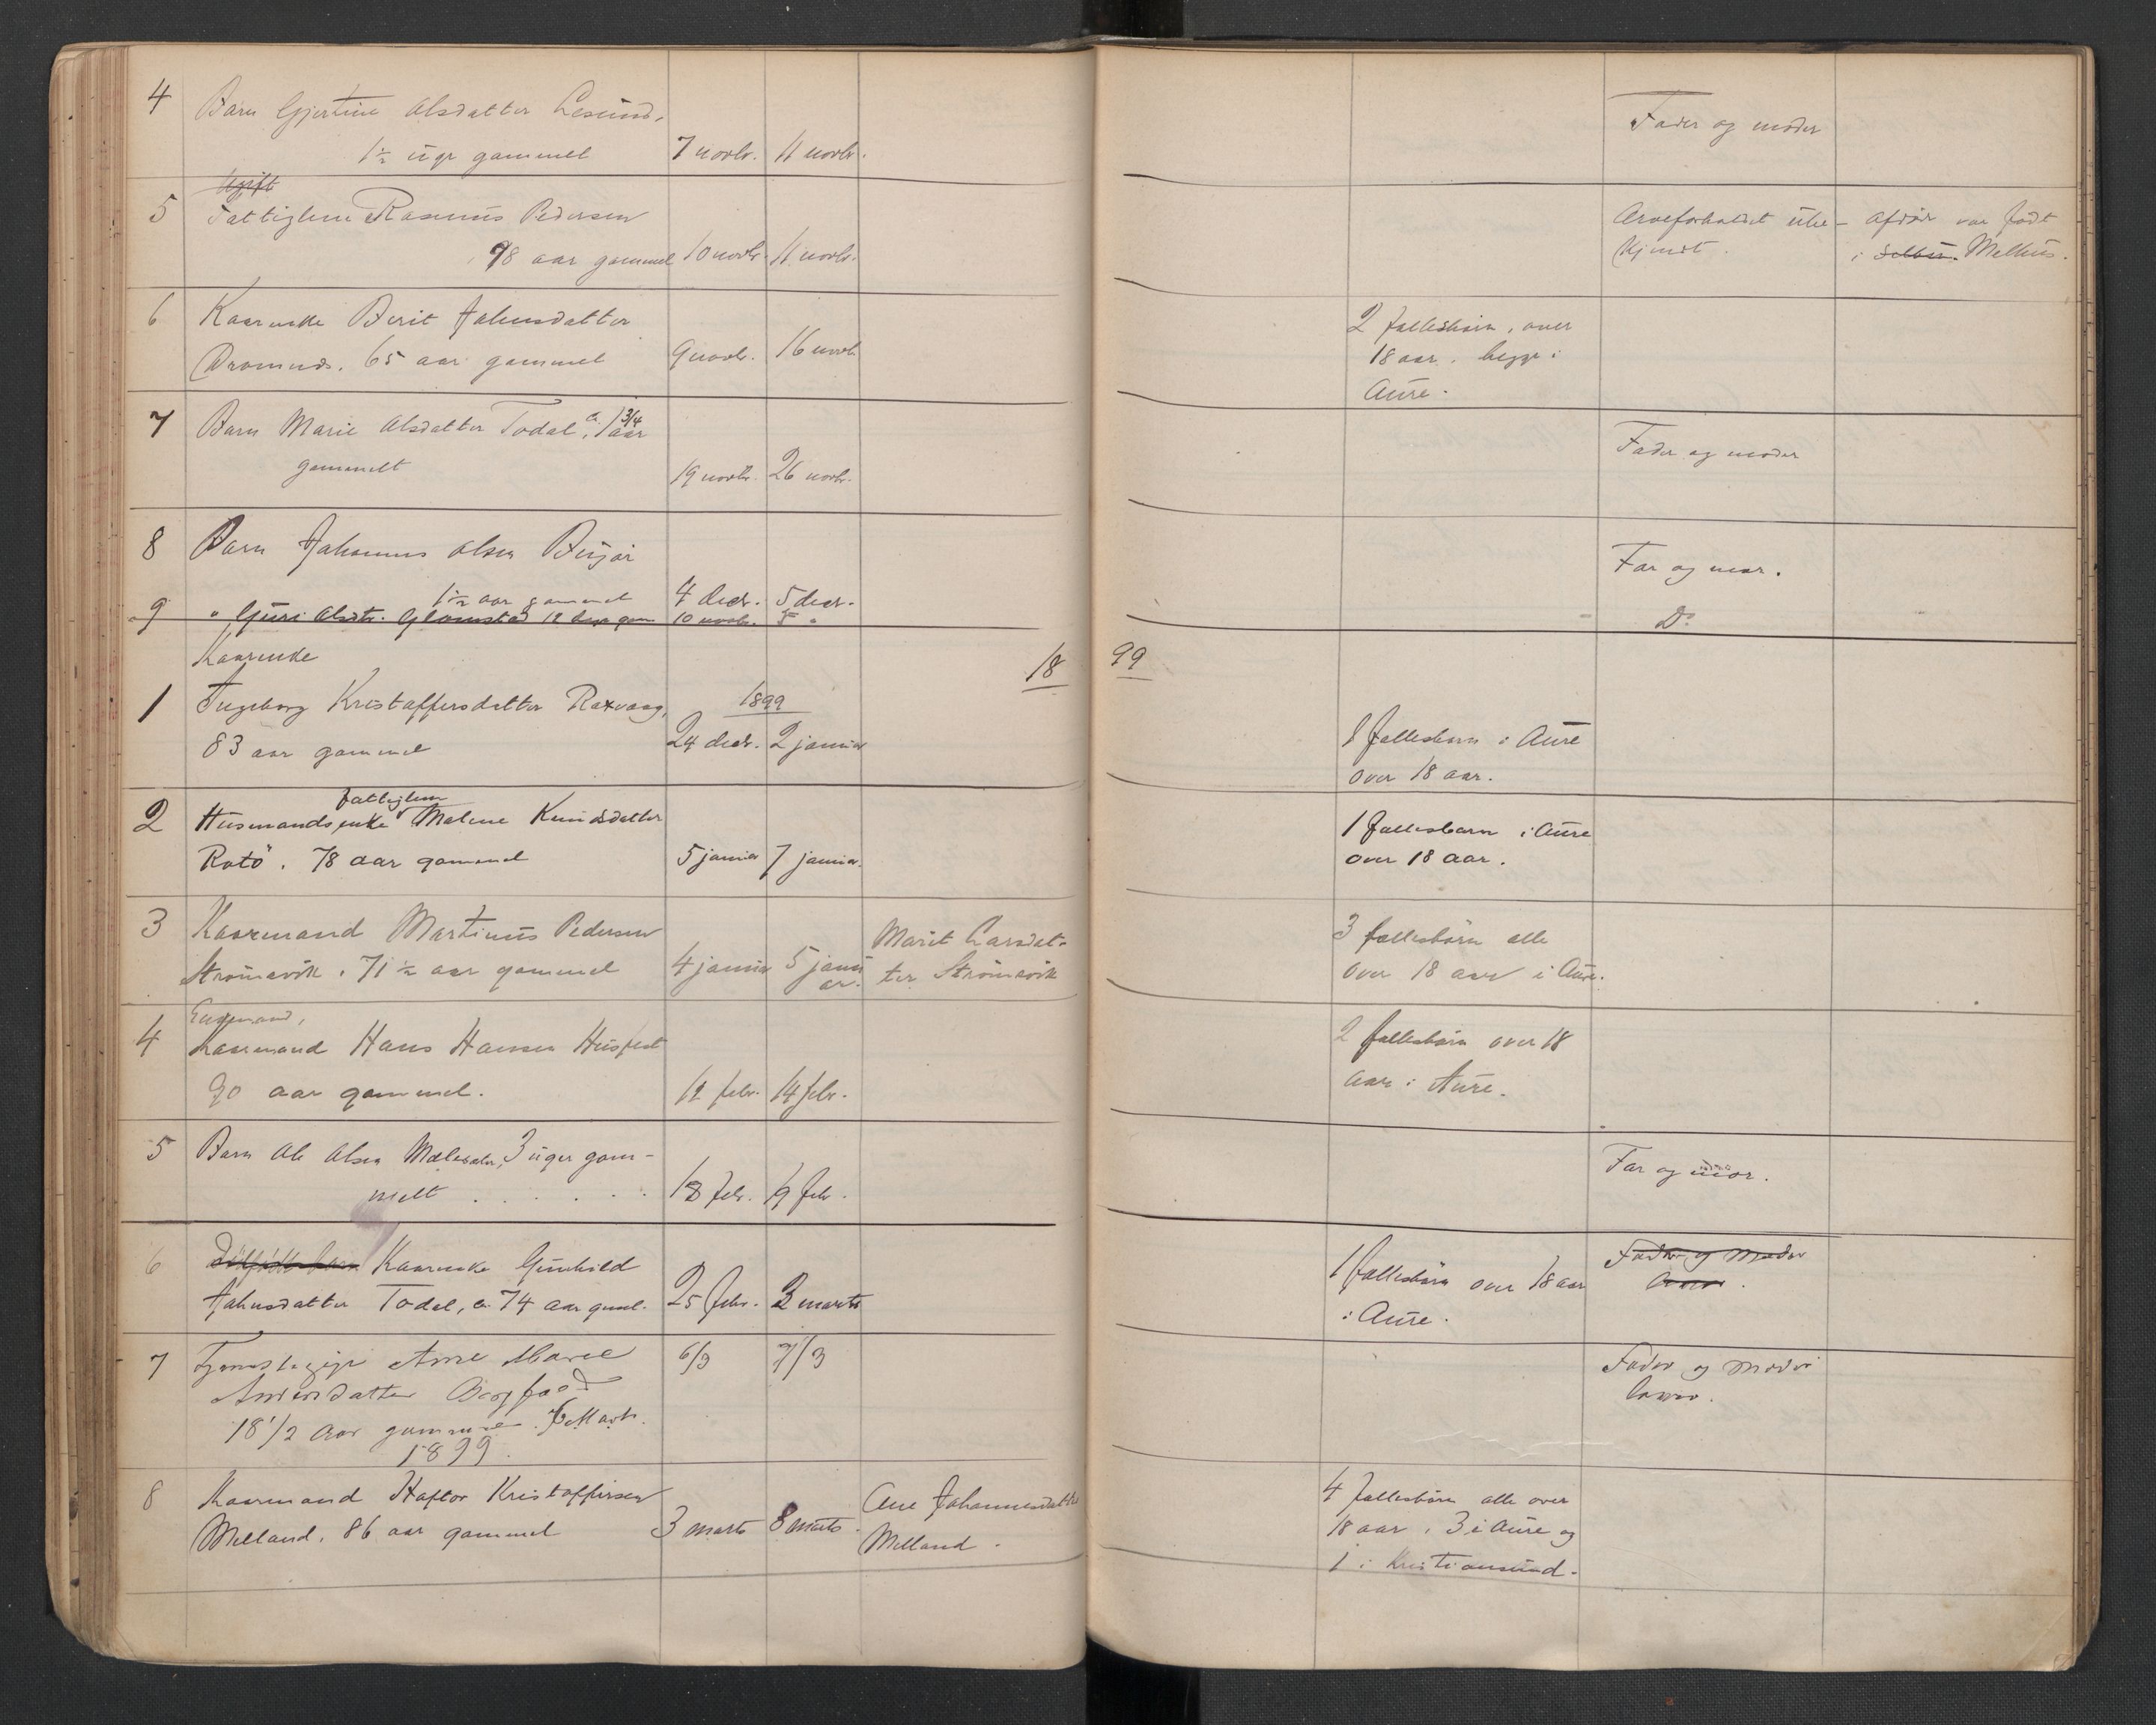 4 Barn Gjertine Olsdatter Lesund,
1½ uge gammel 7 novbr. 11 novbr. Fader og moder
Ugift
5 Fattiglem Rasmus Pedersen Arveforholdet ube- Afdøde var født
78 aar gammel 10 novbr. 11 novbr. kjendt. i Selbu. Melhus.
6 Kaarenke Berit Johnsdatter 2 fællesbørn, over
Dromnes. 65 aar gammel 9 novbr. 16 novbr. 18 aar, begge i
Aure.
7 Barn Marie Olsdatter Todal, ca. 1 3/4 aar Fader og moder
gammelt 19 novbr. 26 novbr.
8 Barn Johannes Olsen Bugjør Far og mor.
1½ aar gammel 4 decbr. 5 decbr.
9 " Guri Olsdtr. Glomstad 12 dage gam 10 novbr. 5 " Do
Kaarenke 18 99
1 Ingeborg Kristoffersdatter Roxvaag, 1899 1 fællesbarn i Aure
83 aar gammel 24 decbr. 2 januar over 18 aar.
fattiglem
2 Husmandsenke Malene Knudsdatter 1 fællesbarn i Aure
Rotø. 78 aar gammel 5 januar 7 januar. over 18 aar.
3 Kaarmand Martinus Pedersen Marit Larsdat- 3 fællesbørn alle
Strømsvik. 71½ aar gammel 4 januar 5 janu ar. ter Strømsvik over 18 aar i Aure.
Enkemand,
4 Kaarmand Hans Hansen Husfest 2 fællesbørn over 18
90 aar gammel. 12 febr. 14 febr. aar i Aure.
5 Barn Ole Olsen 3 uger gam- Far og mor.
melt . . . . . . 18 febr. 19 febr.
6 Kaarenke Gunhild 1 fællesbørn over 18 aar Fader og Moder
Johnsdatter Todal, ca. 74 aar gml. 25 febr. 2 marts i Aure.
7 Tjenestepige Ane Marie 6/3 7/3 Fader og Moder
Andersdatter lever.
18 1/2 Aar gammel. Marts.
1899.
8 Kaarmand Haftor Kristoffersen Ane Johannesdatter 4 fællesbørn alle over
Melland, 86 aar gammel 3 marts 8 marts. Melland. 18 aar, 3 i Aure og
1 i Kristiansund.